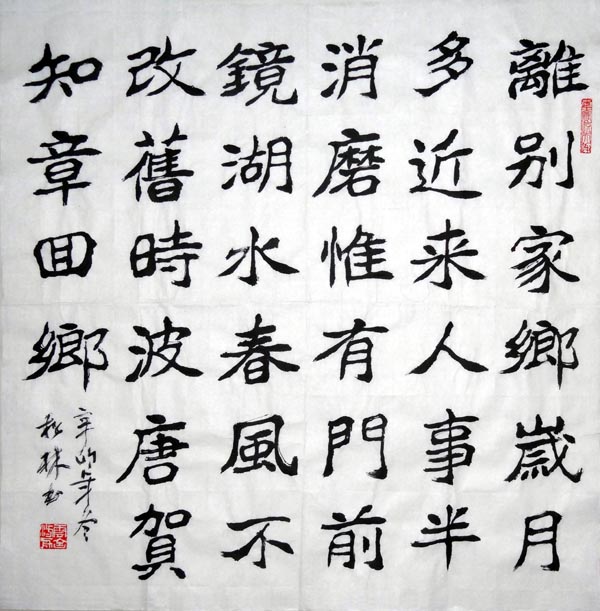 離别家鄉歲月
多近来人事半
消磨惟有門前
鏡湖水春風不
改舊時波唐賀
知章回鄉
辛卯年冬